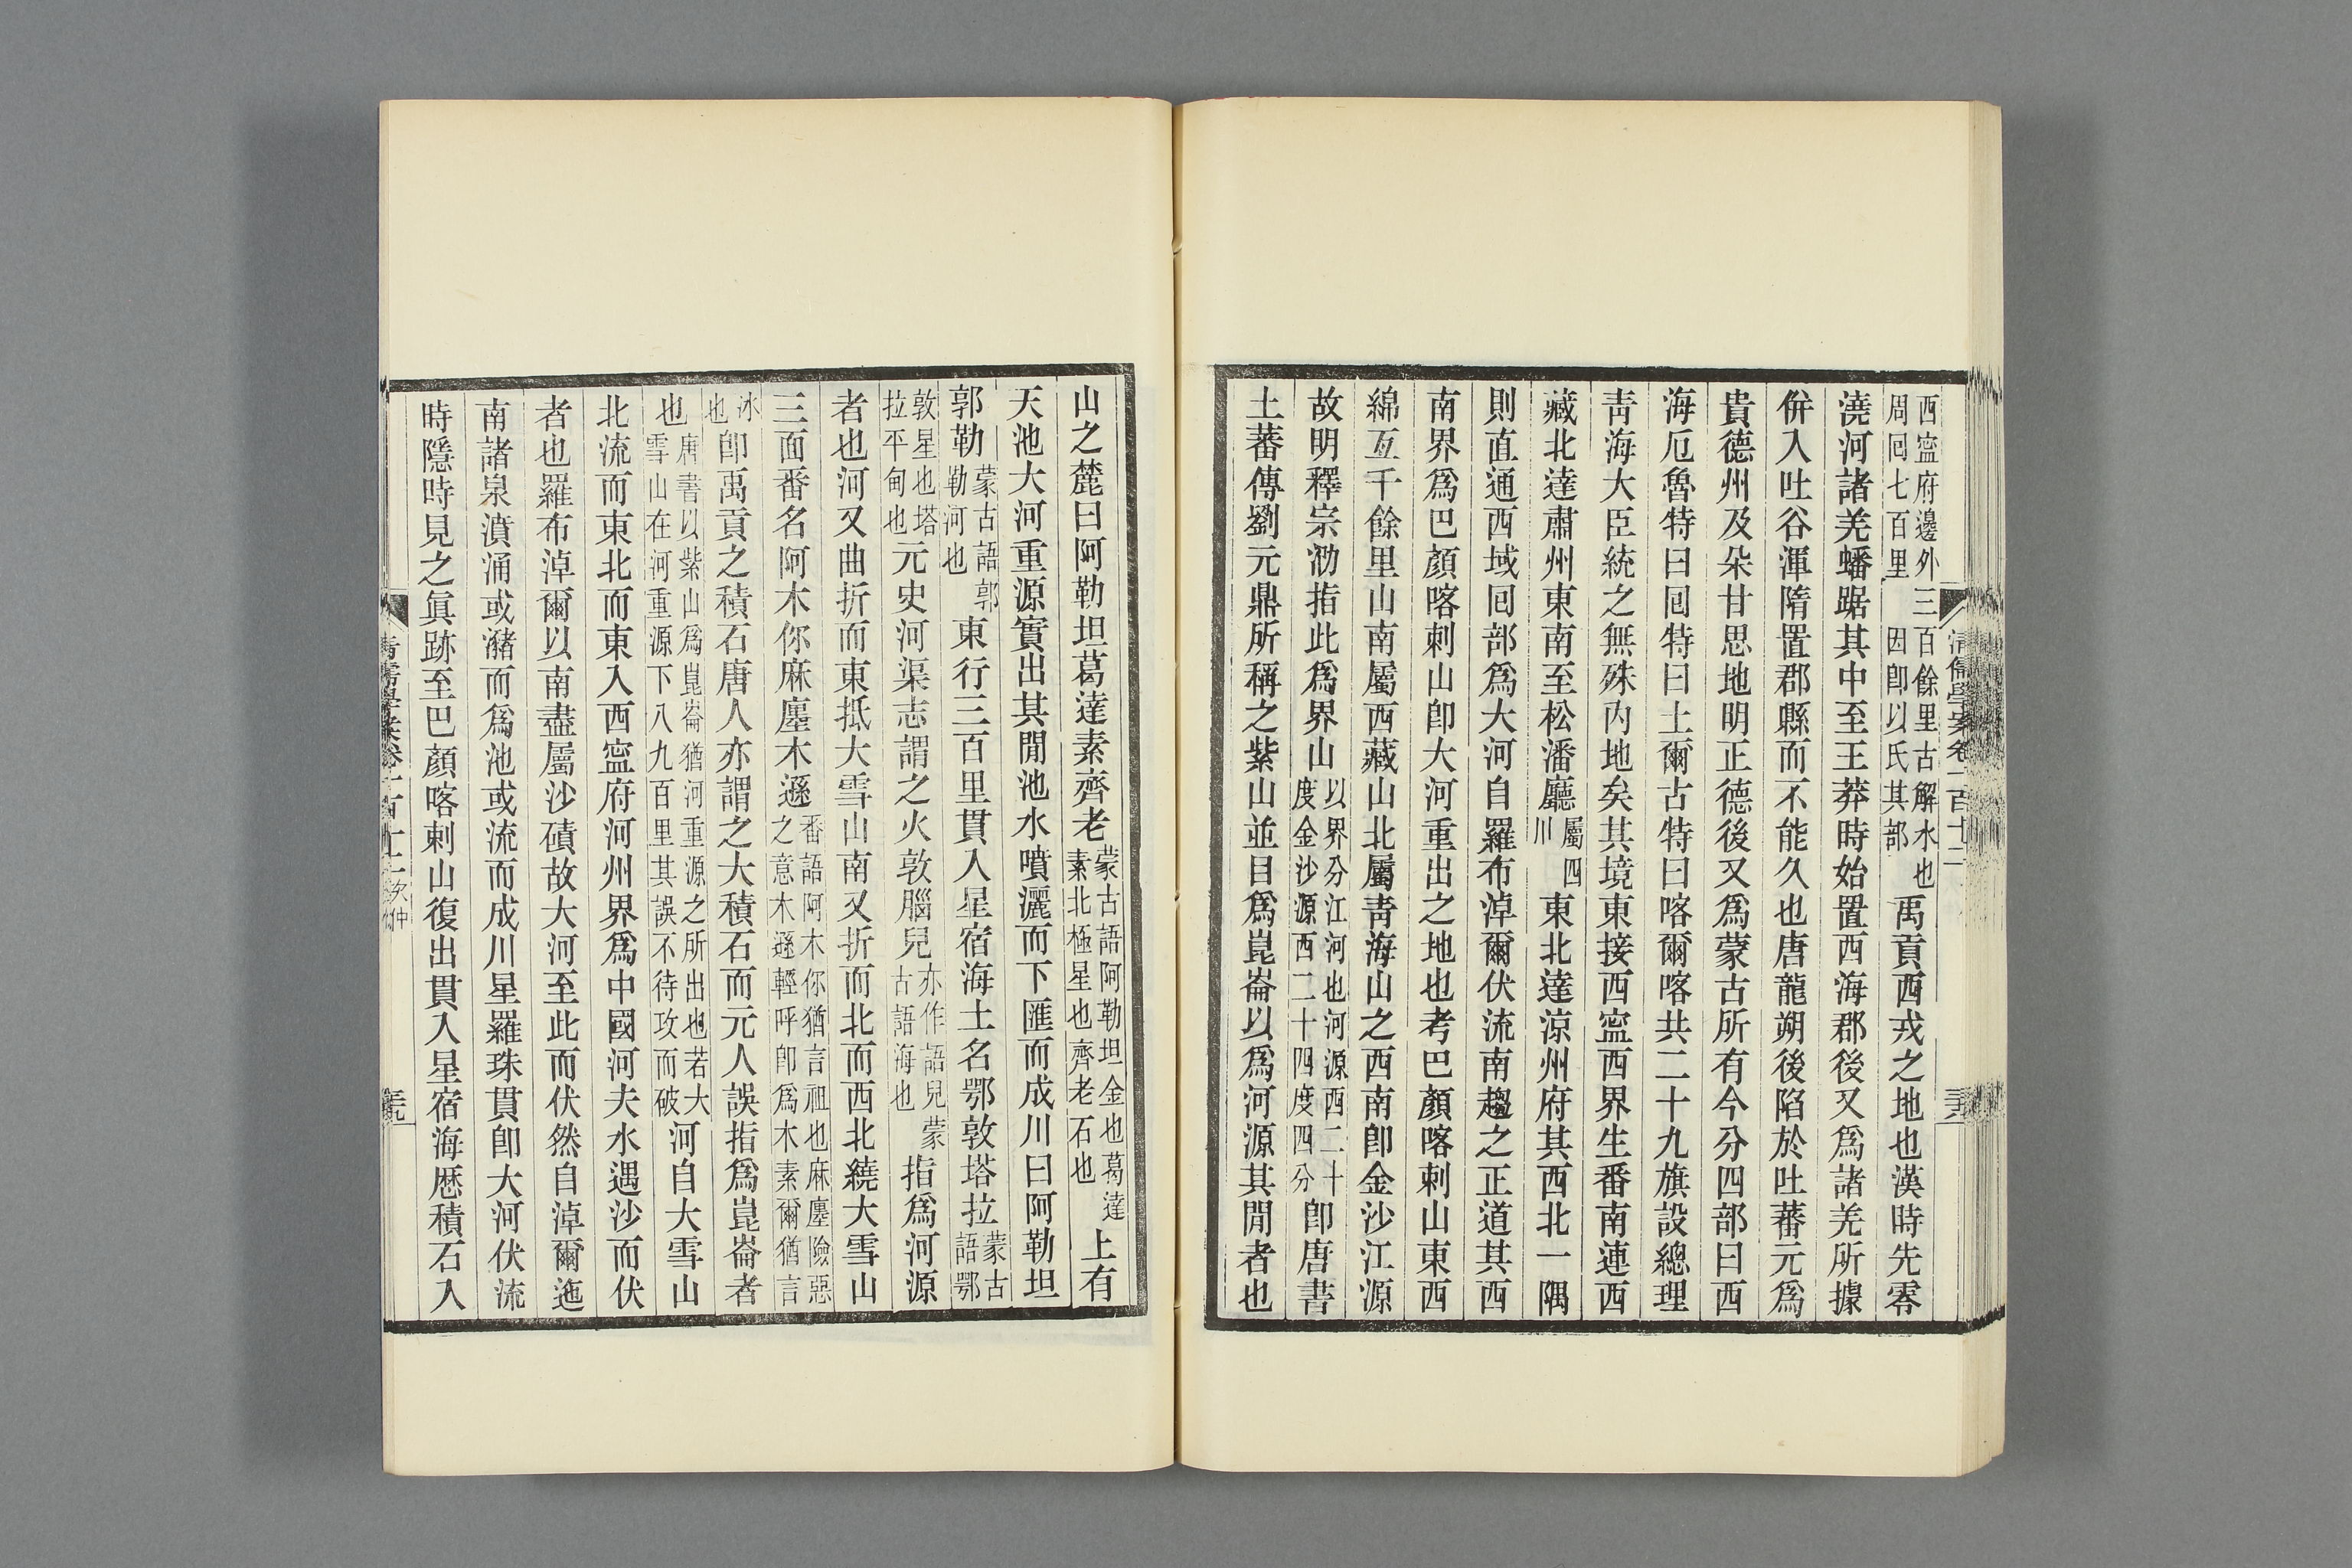 西寍府邊外三百餘里古解水也周囘七百里因卽以氏其部禹貢西戎之地也漢時先零
澆河諸羌蟠踞其中至王莽時始置西海郡後又爲諸羌所據
併入吐谷渾隋置郡縣而不能久也唐龍朔後陷於吐蕃元爲
貴德州及朵甘思地明正德後又爲蒙古所有今分四部曰西
海厄魯特曰囘特曰土爾古特曰喀爾喀共二十九旗設總理
靑海大臣統之無殊內地矣其境東接西寍西界生番南連西
藏北達肅州東南至松潘廳屬四川東北達涼州府其西北一隅
則直通西域囘部爲大河自羅布淖爾伏流南趨之正道其西
南界爲巴顏喀剌山卽大河重出之地也考巴顏喀剌山東西
綿亙千餘里山南屬西藏山北屬靑海山之西南卽金沙江源
故明釋宗泐指此爲界山以界分江河也河源西二十度金沙源西二十四度四分卽唐書
土蕃傳劉元鼎所稱之紫山並目爲崑崙以爲河源其閒者也
清儒學案卷一百十二
三五
山之麓曰阿勒坦葛達素齊老蒙古語阿勒坦金也葛達素北極星也齊老石也上有
天池大河重源實出其閒池水噴灑而下匯而成川曰阿勒坦
郭勒蒙古語郭勒河也東行三百里貫入星宿海土名鄂敦塔拉蒙古語鄂
敦星也塔拉平甸也元史河渠志謂之火敦腦兒亦作語兒蒙古語海也指爲河源
者也河又曲折而東抵大雪山南又折而北而西北繞大雪山
三面番名阿木你麻廛木遜番語阿木你猶言祖也麻廛險惡之意木遜輕呼卽爲木素爾猶言
冰也卽禹貢之積石唐人亦謂之大積石而元人誤指爲崑崙者
也唐書以紫山爲崑崙猶河重源之所出也若大雪山在河重源下八九百里其誤不待攻而破河自大雪山
北流而東北而東入西寍府河州界爲中國河夫水遇沙而伏
者也羅布淖爾以南盡屬沙磧故大河至此而伏然自淖爾迤
南諸泉濆涌或瀦而爲池或流而成川星羅珠貫卽大河伏流
時隱時見之眞跡至巴顏喀剌山復出貫入星宿海歷積石入